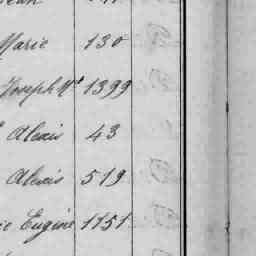 Marie 130
Joseph Mⁱᵉ 1399
Alexis 43
Alexis 519
Eugène 1151